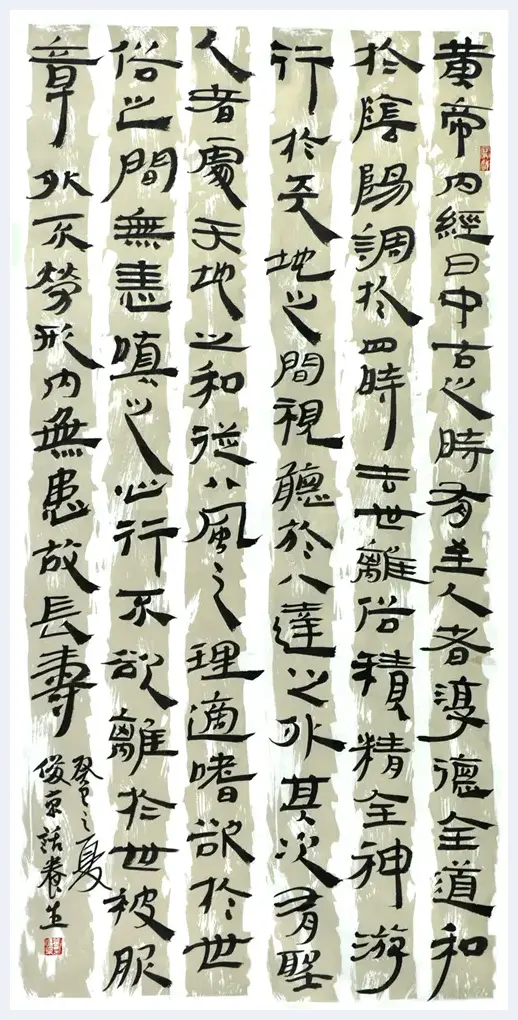 黄帝内經曰中古之時有至人者淳德全道和
於陰陽調於四時去世離俗積精全神游
行於天地之間視聽於八達之外其次有聖
人者處天地之和從八風之理適嗜欲於世
俗之間無恚嗔之心行不欲離於世被服
章外不勞形内無患故長壽
癸巳之夏
俊京話養生